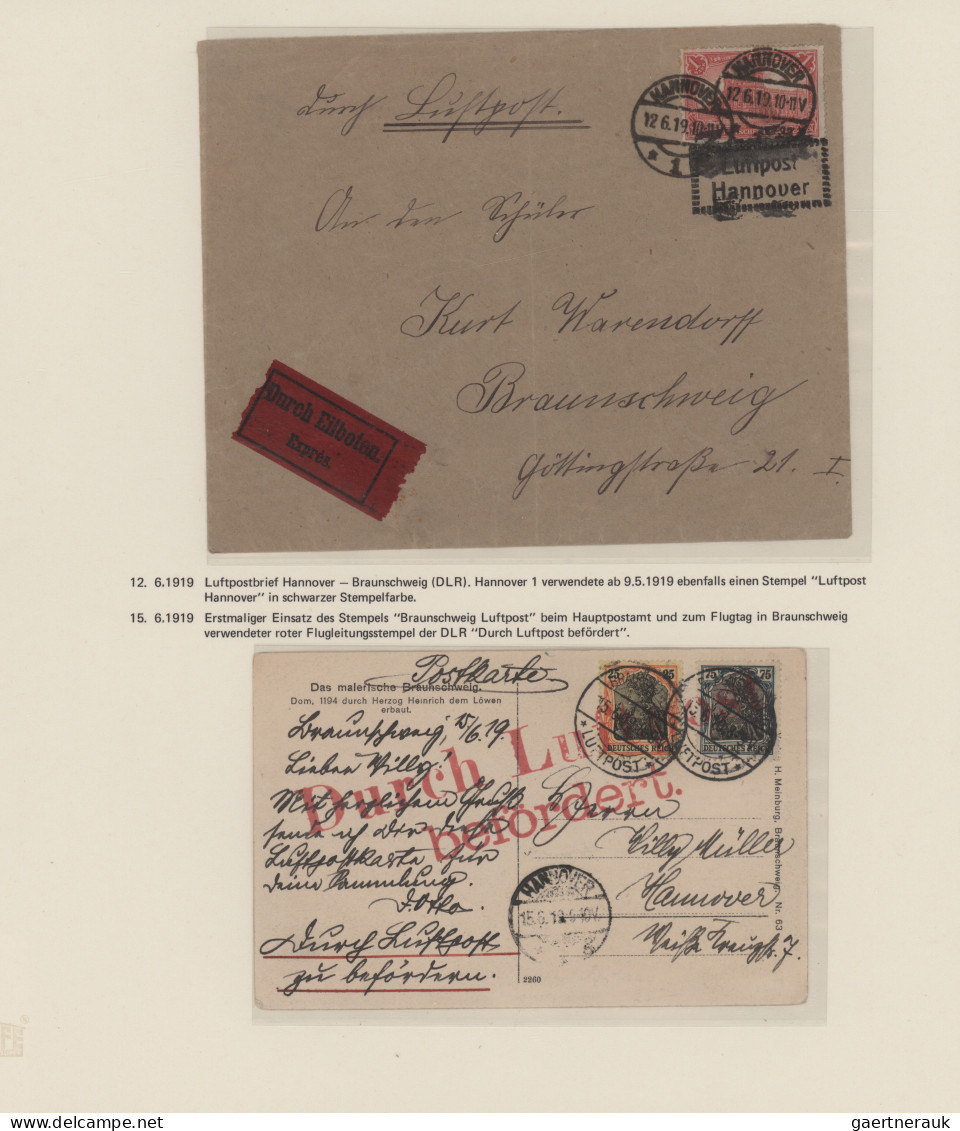 durch Luftpost.
HANNOVER
12 6.19.10-11V
* 1
HANNOVER
12 6.19.10-11V
Luftpost
Hannover
An den Schüler
Kurt Warendorff
Braunschweig
Göttingstraße 21. I
Durch Eilboten.
Exprès.
12. 6.1919 Luftpostbrief Hannover – Braunschweig (DLR). Hannover 1 verwendete ab 9.5.1919 ebenfalls einen Stempel “Luftpost
Hannover” in schwarzer Stempelfarbe.
15. 6.1919 Erstmaliger Einsatz des Stempels “Braunschweig Luftpost” beim Hauptpostamt und zum Flugtag in Braunschweig
verwendeter roter Flugleitungsstempel der DLR “Durch Luftpost befördert”.
Postkarte
Das malerische Braunschweig.
Dom, 1194 durch Herzog Heinrich dem Löwen
erbaut.
Braunschweig, 15/6.19
Lieber Willy!
Mit herzlichem Gruß
sende ich Dir diese
Luftpostkarte für
deine Sammlung.
Durch Luftpost
zu befördern.
25 25
DEUTSCHES REICH
75 75
DEUTSCHES REICH
* LUFTPOST *
LUFTPOST *
Durch Lu
befördert.
Herrn
Willy Müller
Hannover
Weiße Kreuzstr. 7.
HANNOVER
15.6.19 9-10V.
2260
H. Meinburg, Braunschweig. Nr. 63
gaertnerauk